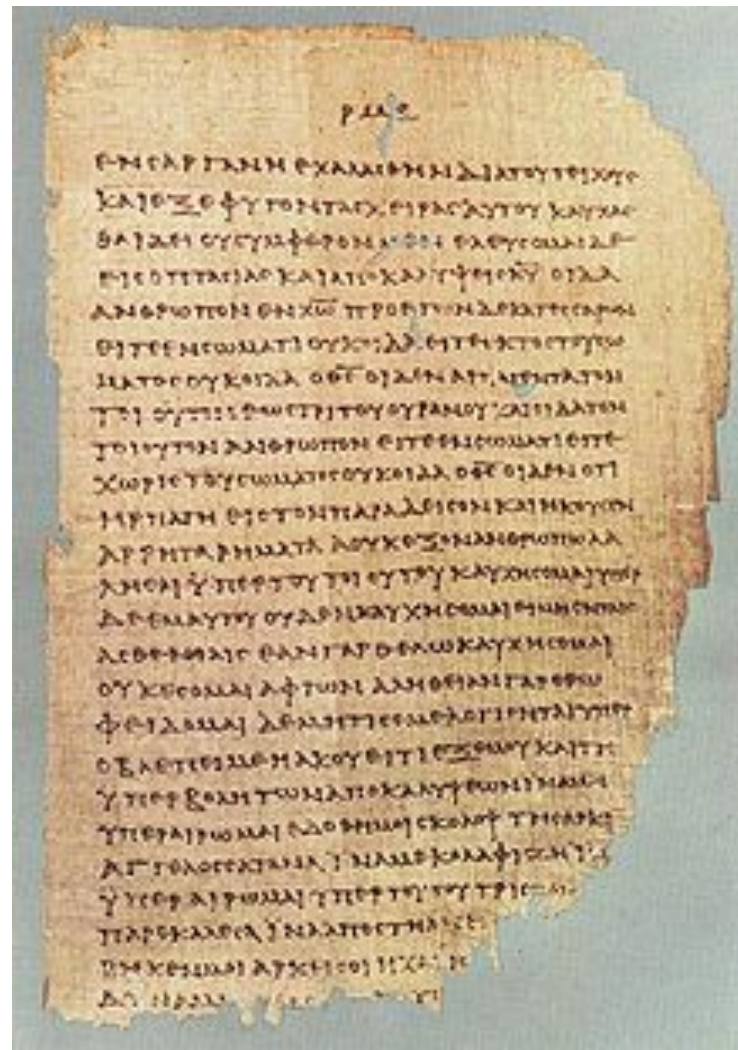 ρμε
ενϲαργανηεχαλαϲθηνδιατουτειχουϲ
καιεξεφυγονταϲχειραϲαυτουκαυχαϲ
θαιδειουϲυμφερονμενελευϲομαιδε
ειϲοπταϲιαϲκαιαποκαλυψειϲκ̅υ̅οιδα
ανθρωπονενχ̅ω̅προετωνδεκατεϲϲαρων
ειτεενϲωματιουκοιδαειτεεκτοϲτουϲω
ματοϲουκοιδαοθ̅ϲ̅οιδεναρπαγεντατον
τοιουτονεωϲτριτουουρανουκαιοιδατον
τοιουτονανθρωπονειτεενϲωματιειτε
χωριϲτουϲωματοϲουκοιδαοθ̅ϲ̅οιδενοτι
ηρπαγηειϲτονπαραδειϲονκαιηκουϲεν
αρρηταρηματααουκεξονανθρωπωλα
ληϲαιϋπερτουτοιουτουκαυχηϲομαιυπερ
δεεμαυτουουδενκαυχηϲομαιειμηενταιϲ
αϲθενειαιϲεανγαρθελωκαυχηϲομαι
ουκεϲομαιαφρωναληθειανγαρερω
φειδομαιδεμητιϲεμελογιϲηταιϋπερ
οβλεπειμεηακουειτιεξεμουκαιτη
ϋπερβολητωναποκαλυψεωνϊναμη
υπεραιρωμαιεδοθημοιϲκολοψτηϲαρκι
αγγελοϲϲαταναϊναμεκολαφιζηϊν
ϋπεραιρωμαιϋπερτουτουτριϲ
παρεκαλεϲαϊνααποϲτη
ρηκενμοιαρκειϲοιηχα
δυναμ